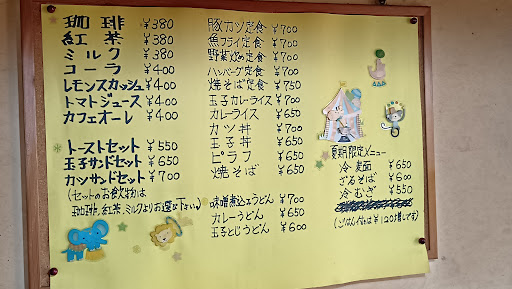 珈琲 ¥380
紅茶 ¥380
ミルク ¥380
コーラ ¥400
レモンスカッシュ ¥400
トマトジュース ¥400
カフェオーレ ¥400
トーストセット ¥550
玉子サンドセット ¥650
カツサンドセット ¥700
(セットのお飲物は
珈琲、紅茶、ミルクよりお選び下さい。)
豚カツ定食 ¥700
魚フライ定食 ¥700
野菜炒め定食 ¥700
ハンバーグ定食 ¥700
焼そば定食 ¥750
玉子カレーライス ¥700
カレーライス ¥650
カツ丼 ¥700
玉子丼 ¥650
ピラフ ¥650
焼そば ¥650
味噌煮込みうどん ¥700
カレーうどん ¥650
玉子とじうどん ¥600
夏期限定メニュー
冷麺 ¥650
ざるそば ¥600
冷むぎ ¥550
(ごはん付は¥120増しです)